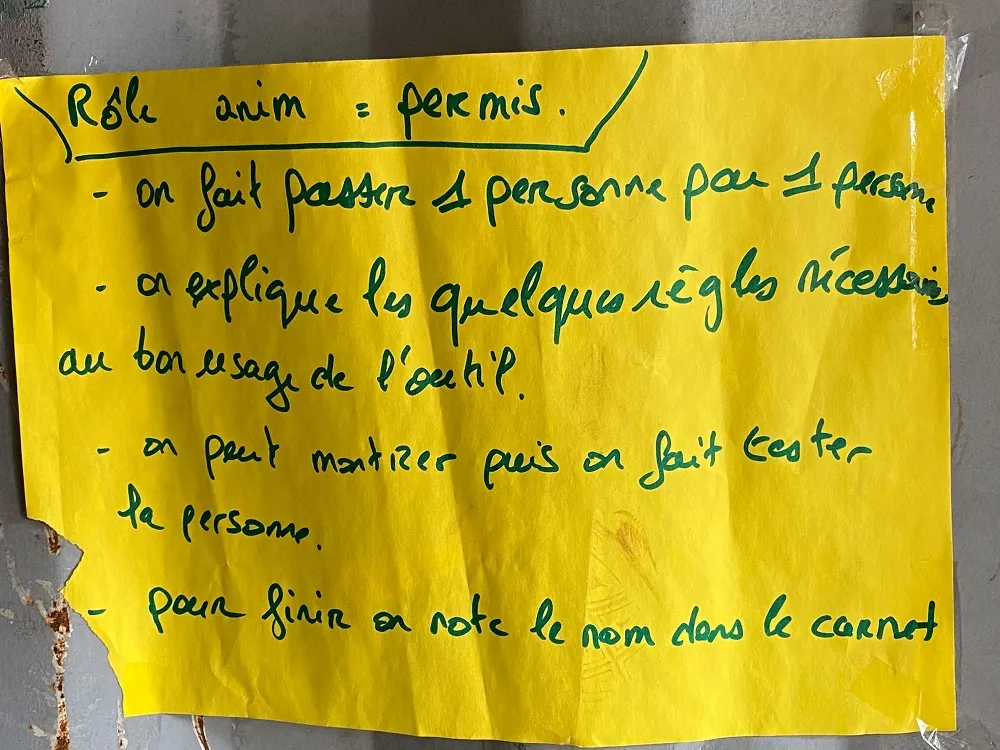 Rôle anim = permis.
- on fait passer 1 personne par 1 personne
- on explique les quelques règles nécessaires
au bon usage de l'outil.
- on peut montrer puis on fait tester
la personne.
- pour finir on note le nom dans le carnet